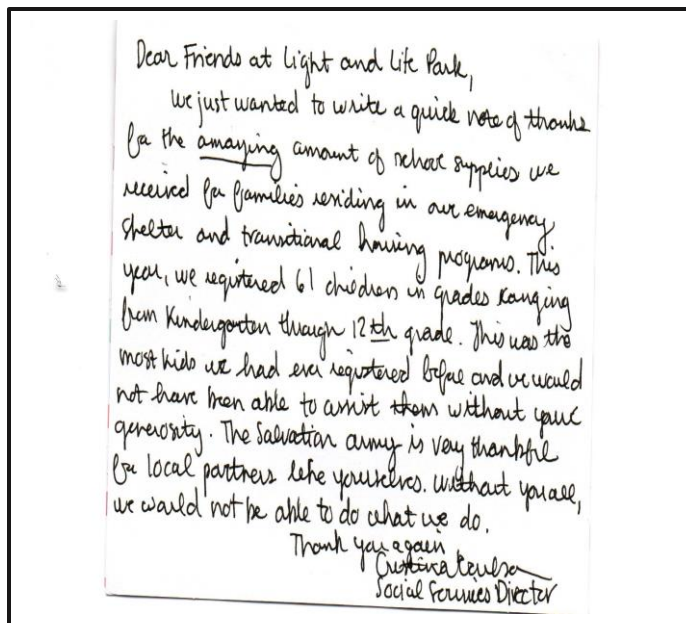 Dear Friends at Light and Life Park,
We just wanted to write a quick note of thanks
for the amazing amount of school supplies we
received for families residing in our emergency
shelter and transitional housing programs. This
year, we registered 61 children in grades ranging
from Kindergarten through 12th grade. This was the
most kids we had ever registered before and we would
not have been able to assist them without your
generosity. The Salvation army is very thankful
for local partners like yourselves. Without you all,
we would not be able to do what we do.
Thank you again,
Social Services Director